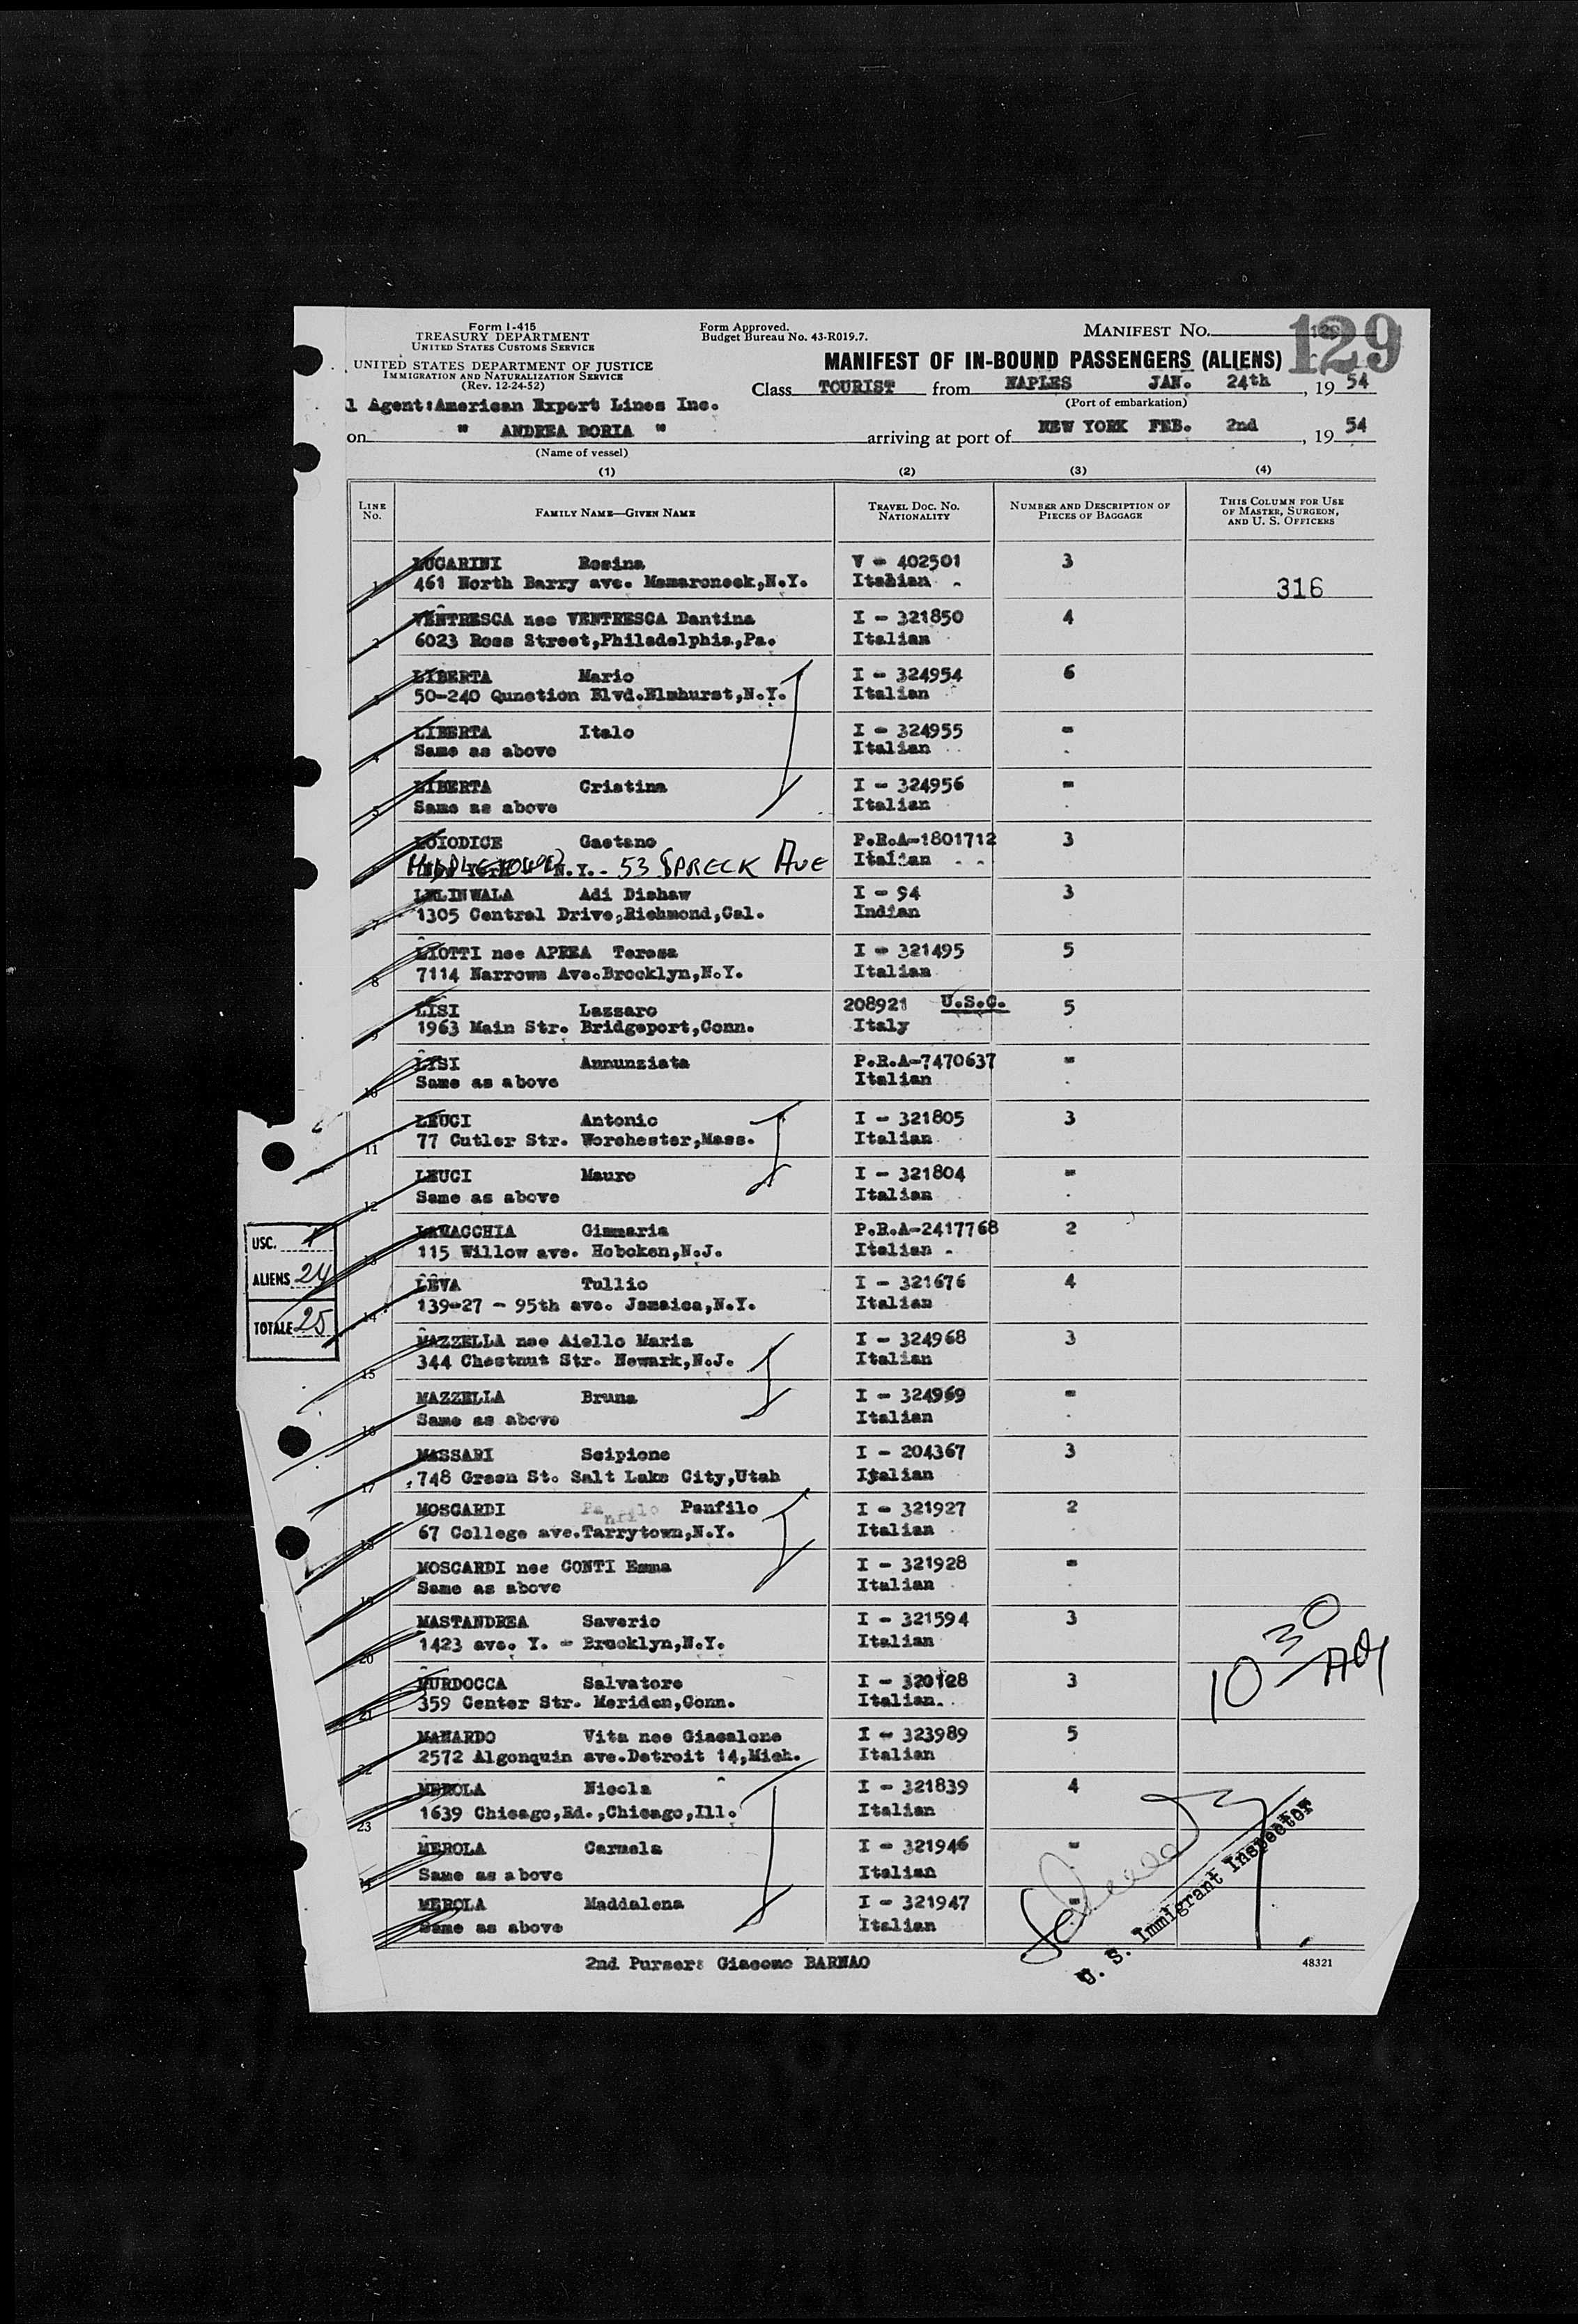 Form I-415
TREASURY DEPARTMENT
UNITED STATES CUSTOMS SERVICE
UNITED STATES DEPARTMENT OF JUSTICE
IMMIGRATION AND NATURALIZATION SERVICE
(Rev. 12-24-52)
Form Approved.
Budget Bureau No. 43-R019.7.
MANIFEST No. 129
MANIFEST OF IN-BOUND PASSENGERS (ALIENS)
Class TOURIST from NAPLES JAN. 24th, 19 54
(Port of embarkation)
l Agent:American Export Lines Inc.
on " ANDREA DORIA " arriving at port of NEW YORK FEB. 2nd, 19 54
(Name of vessel)
(1) (2) (3) (4)
LINE No. FAMILY NAME—GIVEN NAME TRAVEL DOC. NO. NATIONALITY NUMBER AND DESCRIPTION OF PIECES OF BAGGAGE THIS COLUMN FOR USE OF MASTER, SURGEON, AND U. S. OFFICERS
LUCARINI Rosina V - 402501 3
1 461 North Barry ave. Mamaroneck,N.Y. Italian 316
VENTRESCA nee VENTRESCA Dantina I - 321850 4
2 6023 Ross Street,Philadelphia.,Pa. Italian
LIBERTA Mario I - 324954 6
3 50-240 Qunstion Blvd.Elmhurst,N.Y. Italian
LIBERTA Italo I - 324955 -
4 Same as above Italian
LIBERTA Cristina I - 324956 -
5 Same as above Italian
LOIODICE Gaetano P.R.A-1801712 3
MIDDLETOWN N.Y. - 53 SPRECK AVE Italian
LELINWALA Adi Dishaw I - 94 3
7 1305 Central Drive,Richmond,Cal. Indian
LIOTTI nee APREA Teresa I - 321495 5
8 7114 Narrows Ave.Brooklyn,N.Y. Italian
LISI Lazzaro 208921 U.S.C. 5
9 1963 Main Str. Bridgeport,Conn. Italy
LISI Annunziata P.R.A-7470637 -
10 Same as above Italian
LEUCI Antonio I - 321805 3
11 77 Cutler Str. Worchester,Mass. Italian
LEUCI Mauro I - 321804 -
12 Same as above Italian
LAMACCHIA Gimmaria P.R.A-2417768 2
13 115 Willow ave. Hoboken,N.J. Italian
LEVA Tullio I - 321676 4
14 139-27 - 95th ave. Jamaica,N.Y. Italian
MAZZELLA nee Aiello Maria I - 324968 3
15 344 Chestnut Str. Newark,N.J. Italian
MAZZELLA Bruna I - 324969 -
16 Same as above Italian
MASSARI Scipione I - 204367 3
17 748 Green St. Salt Lake City,Utah Italian
MOSCARDI Panfilo Panfilo I - 321927 2
18 67 College ave.Tarrytown,N.Y. Italian
MOSCARDI nee CONTI Emma I - 321928 -
19 Same as above Italian
MASTANDREA Saverio I - 321594 3
20 1423 ave. Y. - Brooklyn,N.Y. Italian
MURDOCCA Salvatore I - 320128 3
21 359 Center Str. Meriden,Conn. Italian.
MANARDO Vita nee Giacalone I - 323989 5
22 2572 Algonquin ave.Detroit 14,Mich. Italian
MEROLA Nicola I - 321839 4
23 1639 Chicago,Rd.,Chicago,Ill. Italian
MEROLA Carmela I - 321946 -
Same as above Italian
MEROLA Maddalena I - 321947 -
Same as above Italian
USC. 1
ALIENS 24
TOTALE 25
10 30
U. S. Immigrant Inspector
2nd Purser: Giacomo BARNAO
48321